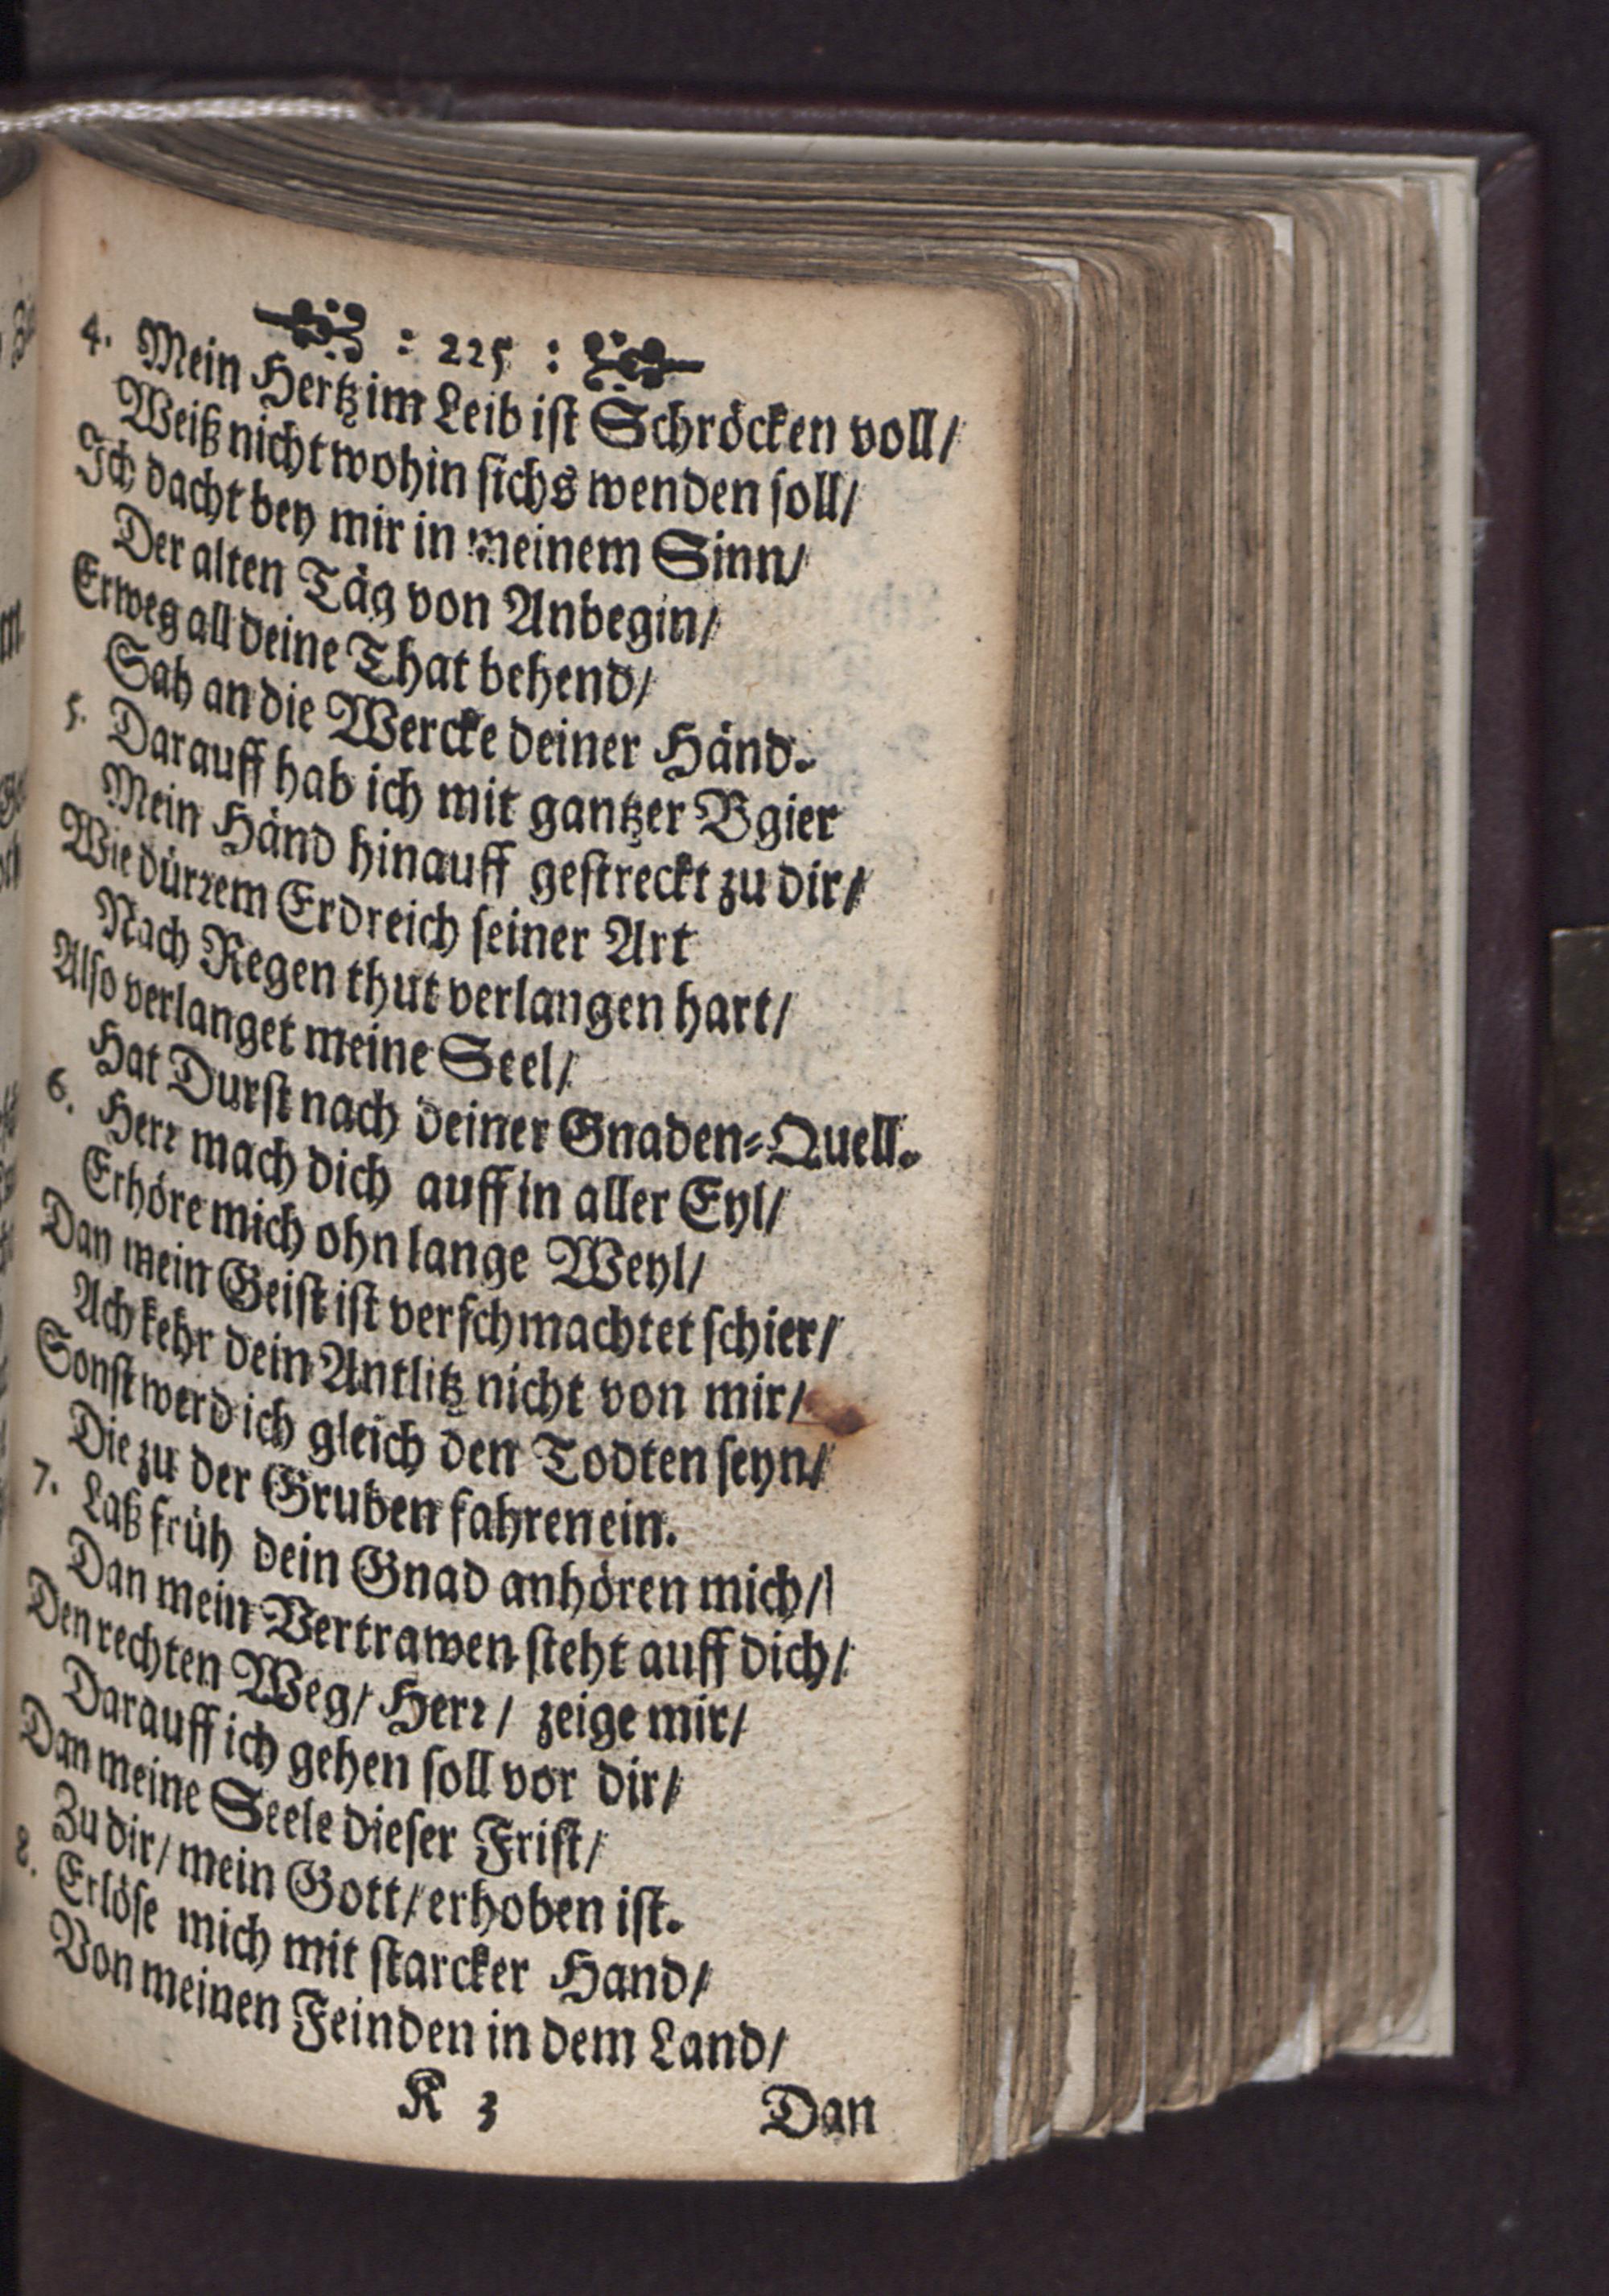 : 225 :
4. Mein Hertz im Leib ist Schröcken voll/
Weiß nicht wohin sichs wenden soll/
Ich dacht bey mir in meinem Sinn/
Der alten Täg von Anbegin/
Erweg all deine That behend/
Sah an die Wercke deiner Händ.
5. Darauff hab ich mit gantzer Bgier
Mein Händ hinauff gestreckt zu dir/
Wie dürrem Erdreich seiner Art
Nach Regen thut verlangen hart/
Also verlanget meine Seel/
Hat Durst nach deiner Gnaden-Quell.
6. Herr mach dich auff in aller Eyl/
Erhöre mich ohn lange Weyl/
Dan mein Geist ist verschmachtet schier/
Ach kehr dein Antlitz nicht von mir/
Sonst werd ich gleich den Todten seyn/
Die zu der Gruben fahren ein.
7. Laß früh dein Gnad anhören mich/
Dan mein Vertrawen steht auff dich/
Den rechten Weg/ Herr/ zeige mir/
Darauff ich gehen soll vor dir/
Dan meine Seele dieser Frist/
Zu dir/ mein Gott/ erhoben ist.
8. Erlöse mich mit starcker Hand/
Von meinen Feinden in dem Land/
K 3 Dan